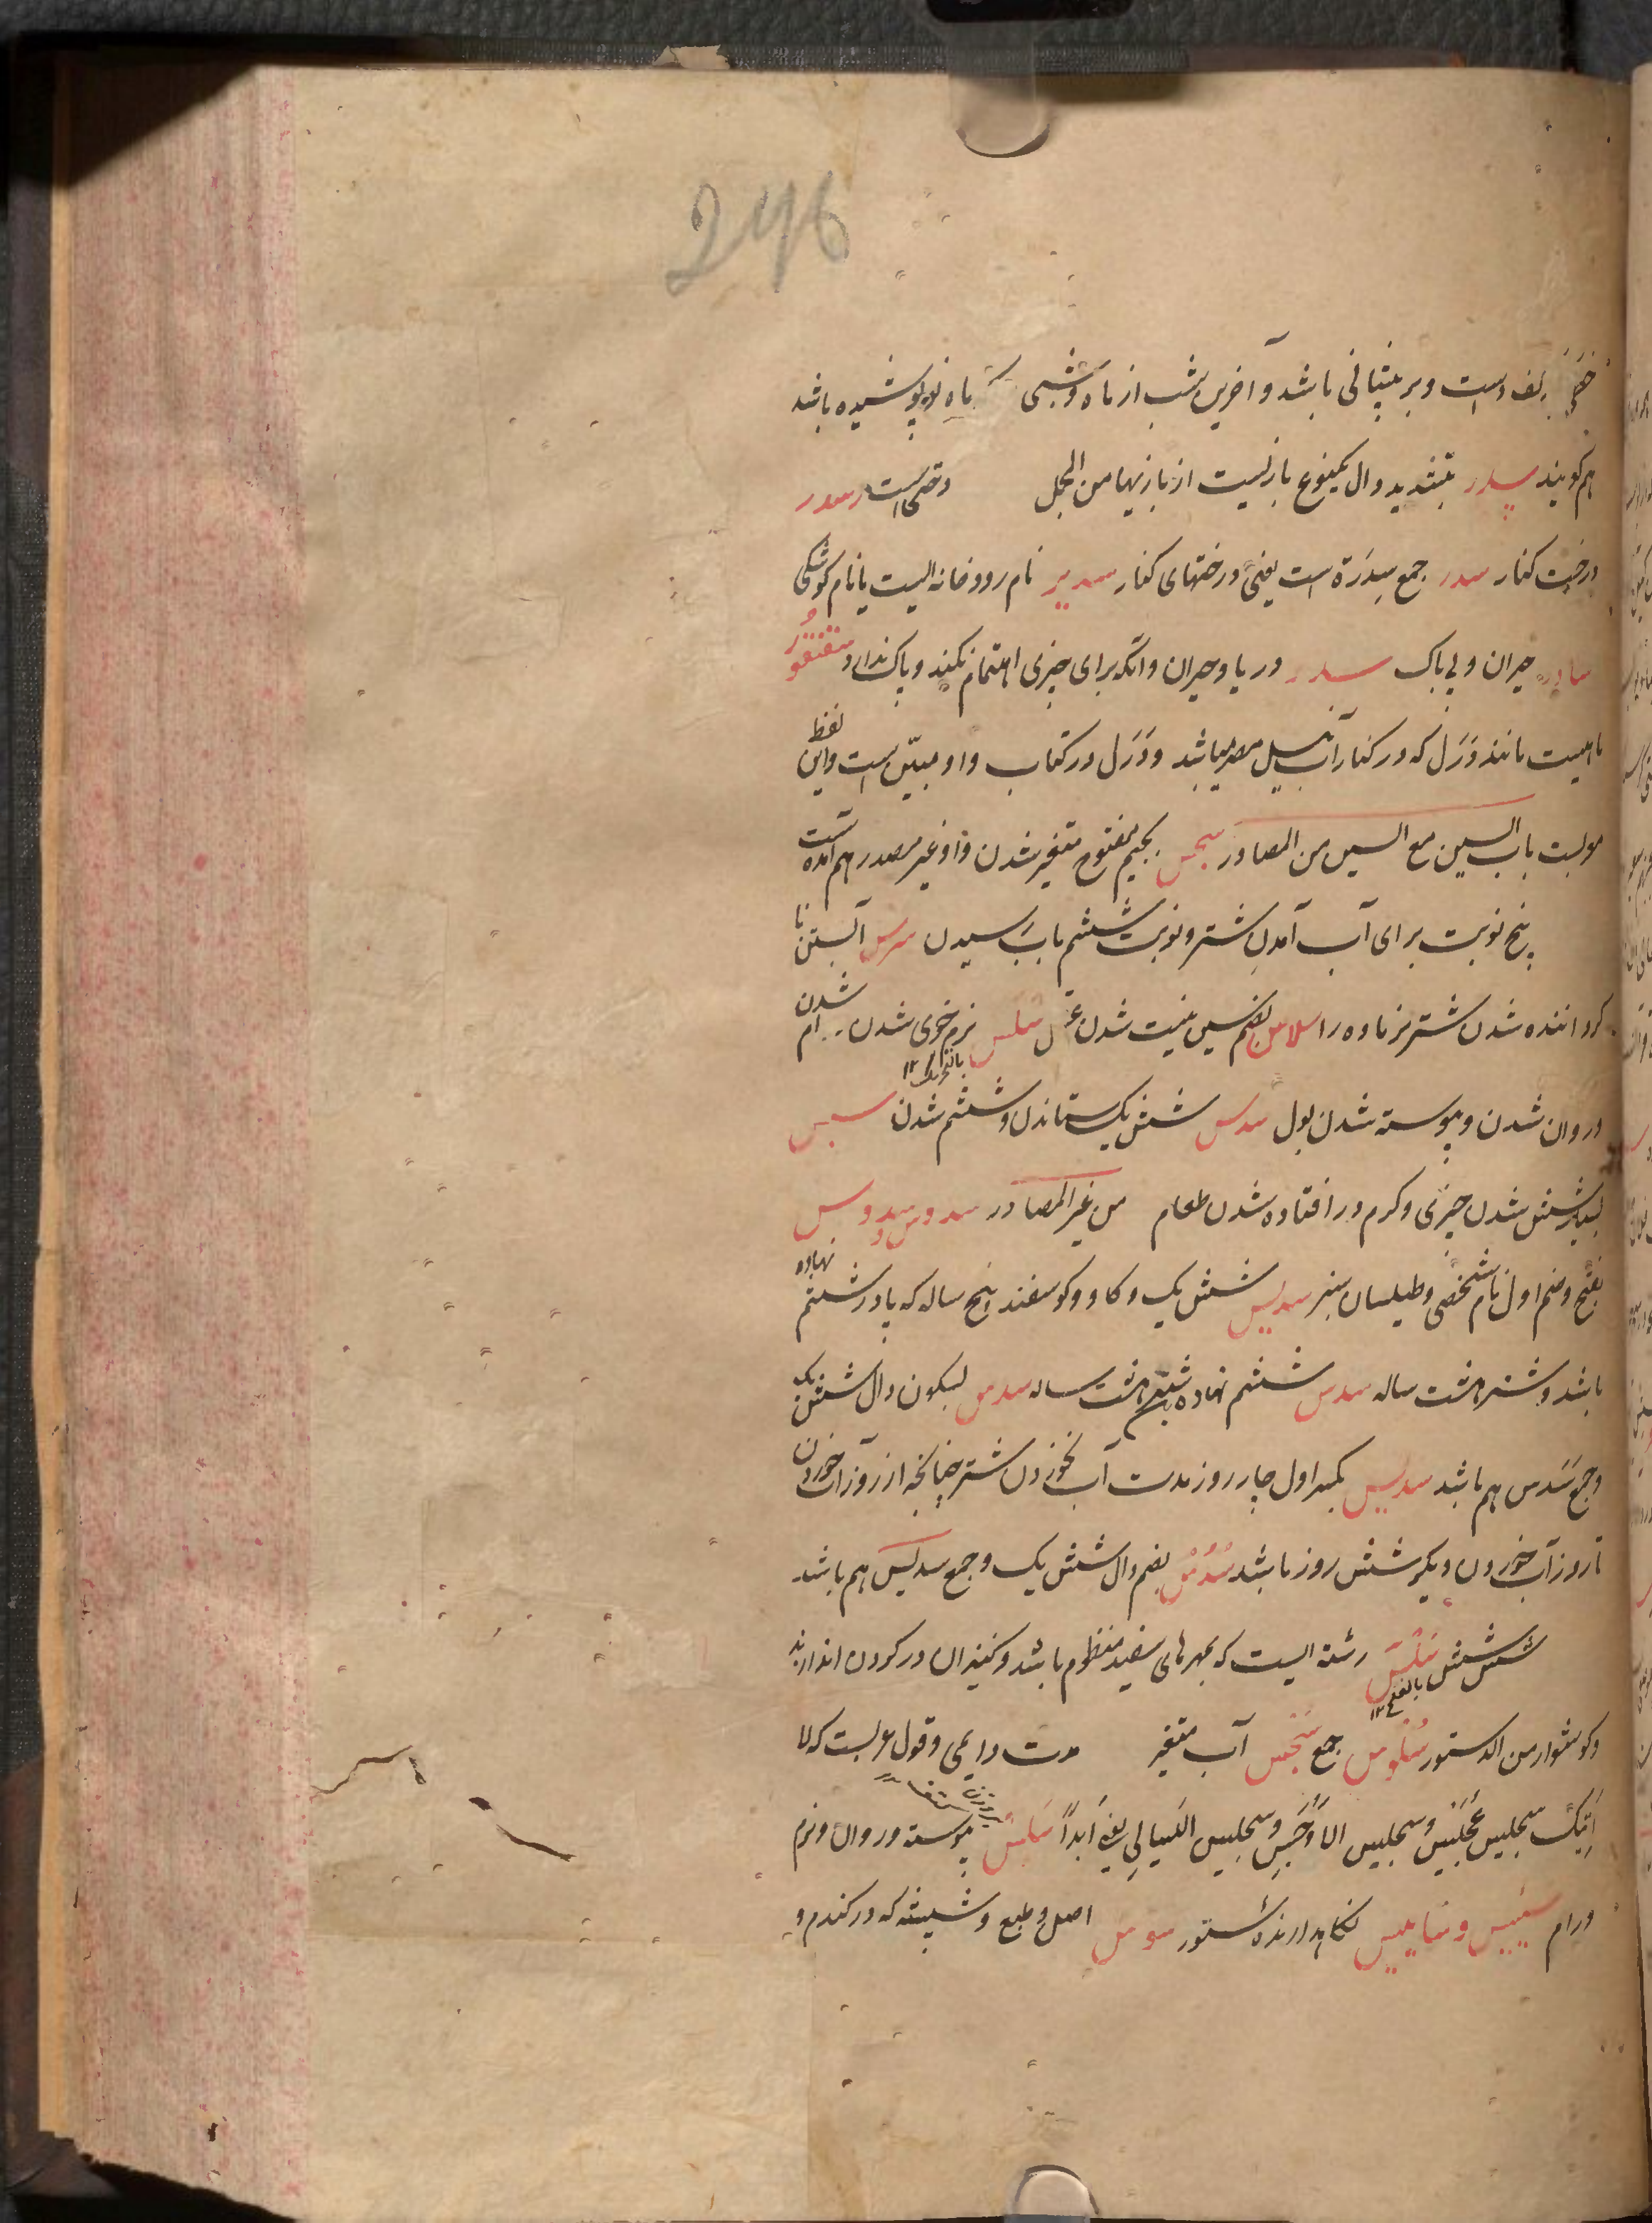 246
خطی بکف دست و بر پیشانی باشد و آخرین شب از ماه و شبی که ماه نو پوشیده باشد
هم گویند سدر بتشدید دال یکنوع بازیست از بازیها من المجمل وقتحی است سدر
درخت کنار سدر جمع سِدرَة است یعنی درختهای کنار سدیر نام رودخانه ایست یا نام کوشکی
سادر حیران و بی باک سدر دریا و حیران و آنکه برای چیزی اهتمام نکند و باک ندارد سقنقور
ماهیست مانند وَرَل که در کنار آب نیل مصر میباشد و وَرَل در کتاب واو مبیّن است و این لفظ
مولد است باب السین مع السین من المصادر سجس بجیم مفتوح متغیر شدن و از غیر مصدر هم آمده است
پنج نوبت برای آب آمدن شتر و نوبت ششم بآب رسیدن سرس آبستن نا
کرداننده شدن شتر نر ماده را سلاس بضم سین نیست شدن عقل سلس بالتحریک ۱۲ نرم خوی شدن رام شدن
و روان شدن و پیوسته شدن بول سدس شش یک ستاندن و ششم شدن سبس
شپش شدن چیزی و کرم در افتاده شدن طعام من غیر المصادر سدوس سدوس
بفتح و ضم اول نام شخصی و طیلسان سبز سدیس شش یک و کاو و کوسفند پنج ساله که پا در ششم نهاده
باشد و شتر هشت ساله سدس ششم نهاده شتر هشت ساله سدس بسکون دال شش یک
و جمع سَدَس هم باشد سدیس بکسر اول چار روز مدت آب نخوردن شتر چنانچه از روز آب خوردن
تا روز آب خوردن دیگر شش روز باشد سُدُس بضم دال شش یک و جمع سدیس هم باشد
شش شش سَلْس بالفتح ۱۲ رشته ایست که مهرهای سفید منظوم باشد و کنیزان در کردن اندازند
و کوشوار من الدستور سُلُوس جمع سَجَس آب متغیر مدت دایمی و قول عربست که لا
اتیک سجیس عُجَیس و سجیس الاَوجَس و سجیس اللیالی یعنی اَبَداً سَلِس پیوسته و روان و نرم
و رام سَیِیس و سَایِس نکاهدارنده ستور سوس اصل و طبع و شپشه که در کندم و